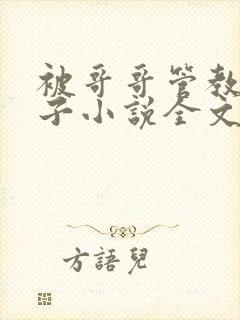 被哥哥管教
子小説全文
方語兒